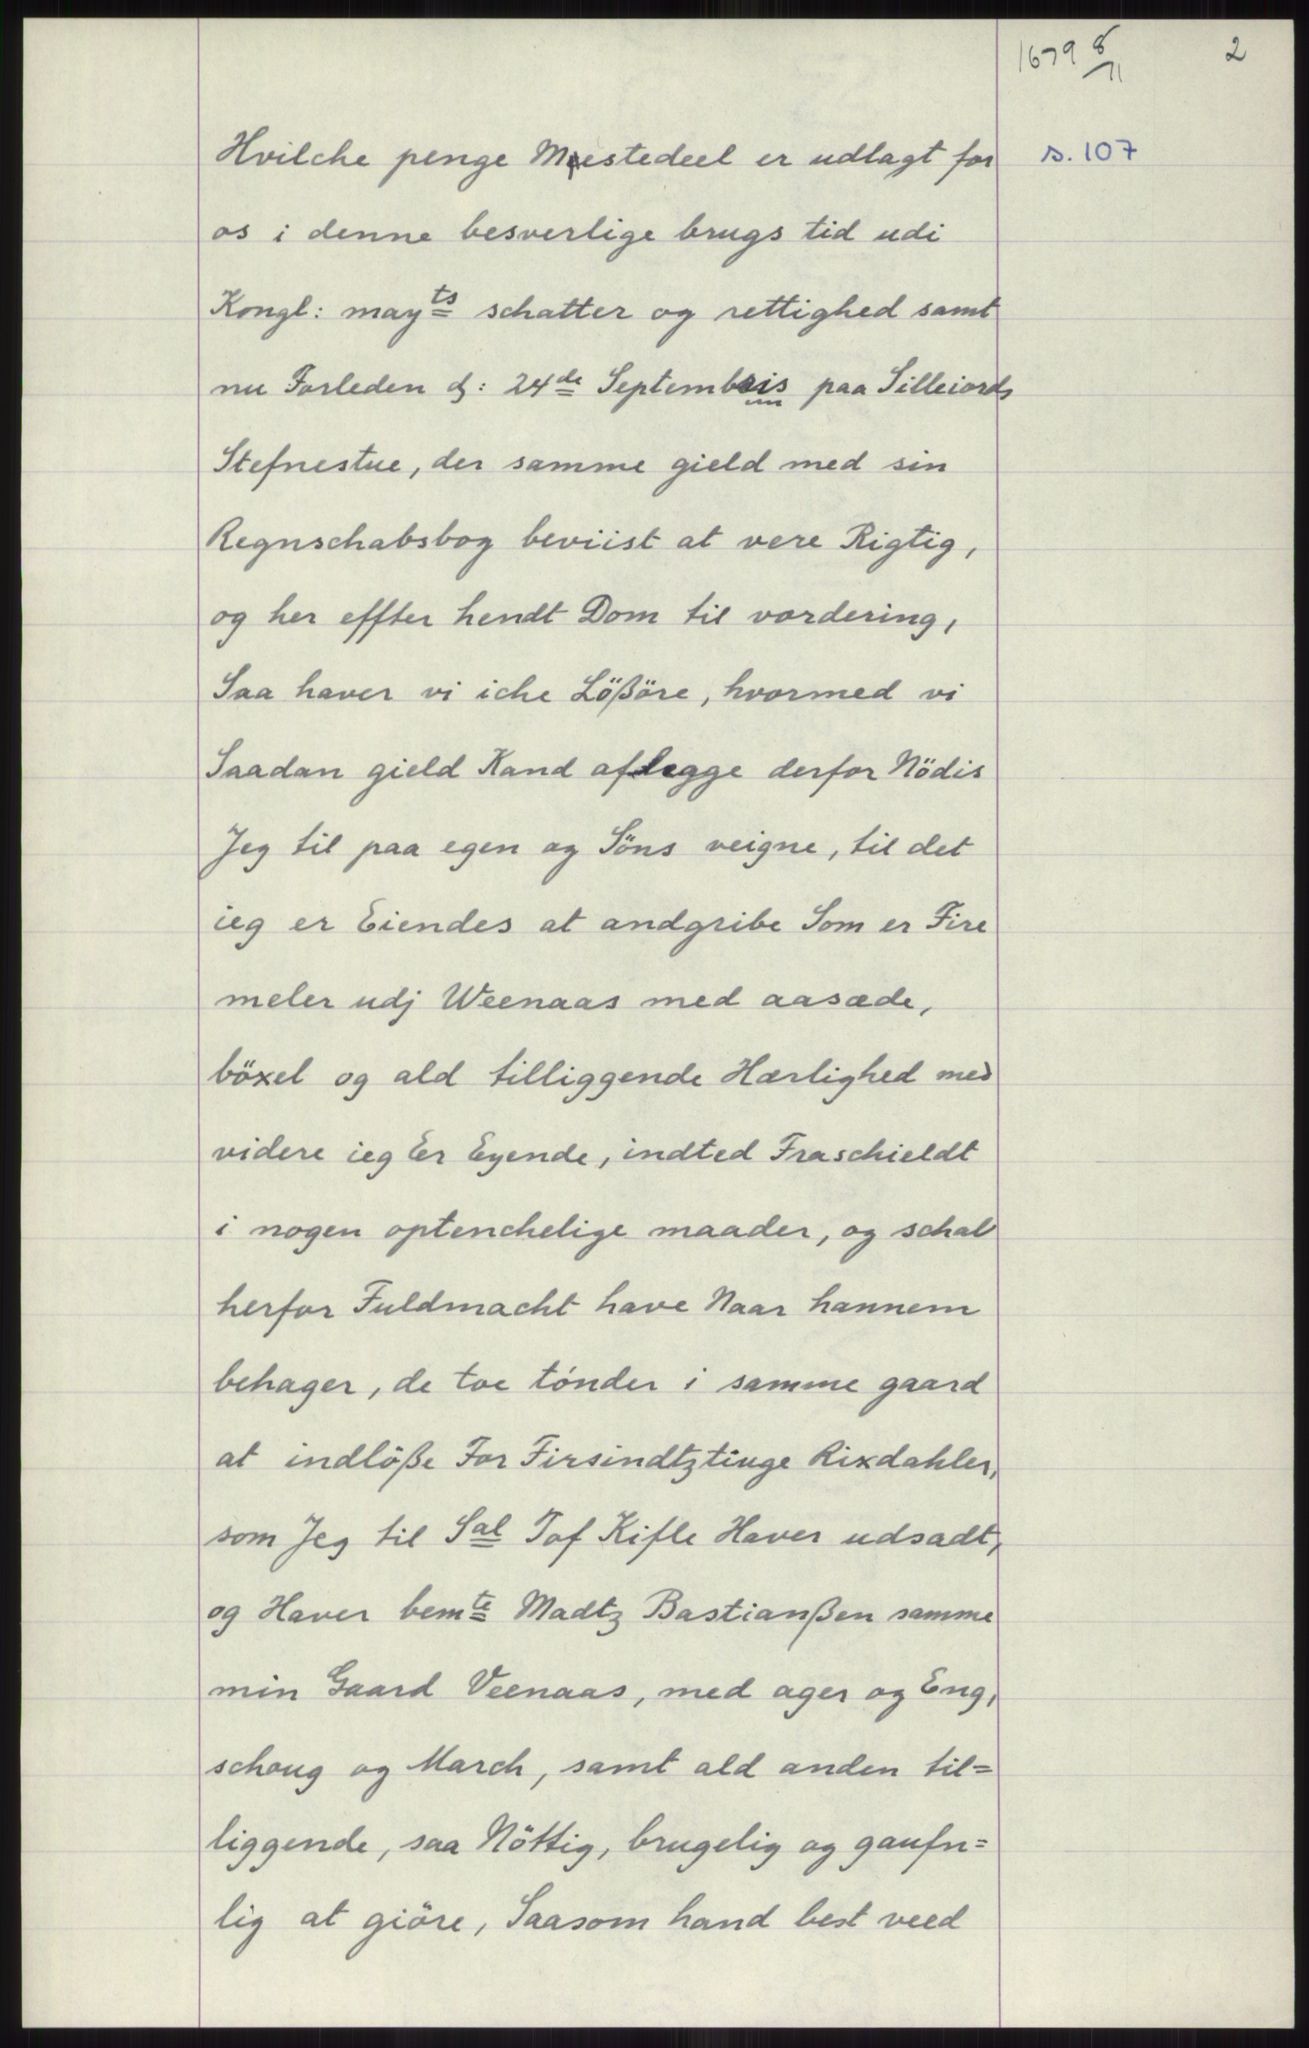 1679 8/11
2
Hvilche penge Meestedeel er udlagt for
s. 107
os i denne besverlige brugs tid udi
Kongl: mayts schatter og rettighed samt
nu Forleden d: 24de Septembris paa Silleiords
Stefnestue, der samme gield med sin
Regnschabsbog beviist at vere Rigtig,
og her effter hendt Dom til vordering,
Saa haver vi iche Lößöre, hvormed vi
Saadan gield Kand aflegge derfor Nödis
Jeg til paa egen og Söns veigne, til det
ieg er Eiendes at andgribe Som er Fire
meler udj Weenaas med aasæde,
böxel og ald tilliggende Herlighed med
videre ieg Er Eyende, indted Fraschieldt
i nogen optenchelige maader, og schal
herfor Fuldmacht have Naar hannem
behager, de toe tónder i samme gaard
at indlöße For Firsindtztiuge Rixdahler,
som Jeg til Sal Tof Kifle Haver udsadt,
og Haver bemte Madtz Bastianßen samme
min Gaard Veenaas, med ager og Eng,
schoug og March, samt ald anden til=
liggende, saa Nöttig, brugelig og gaufn=
lig at giöre, Saasom hand best veed